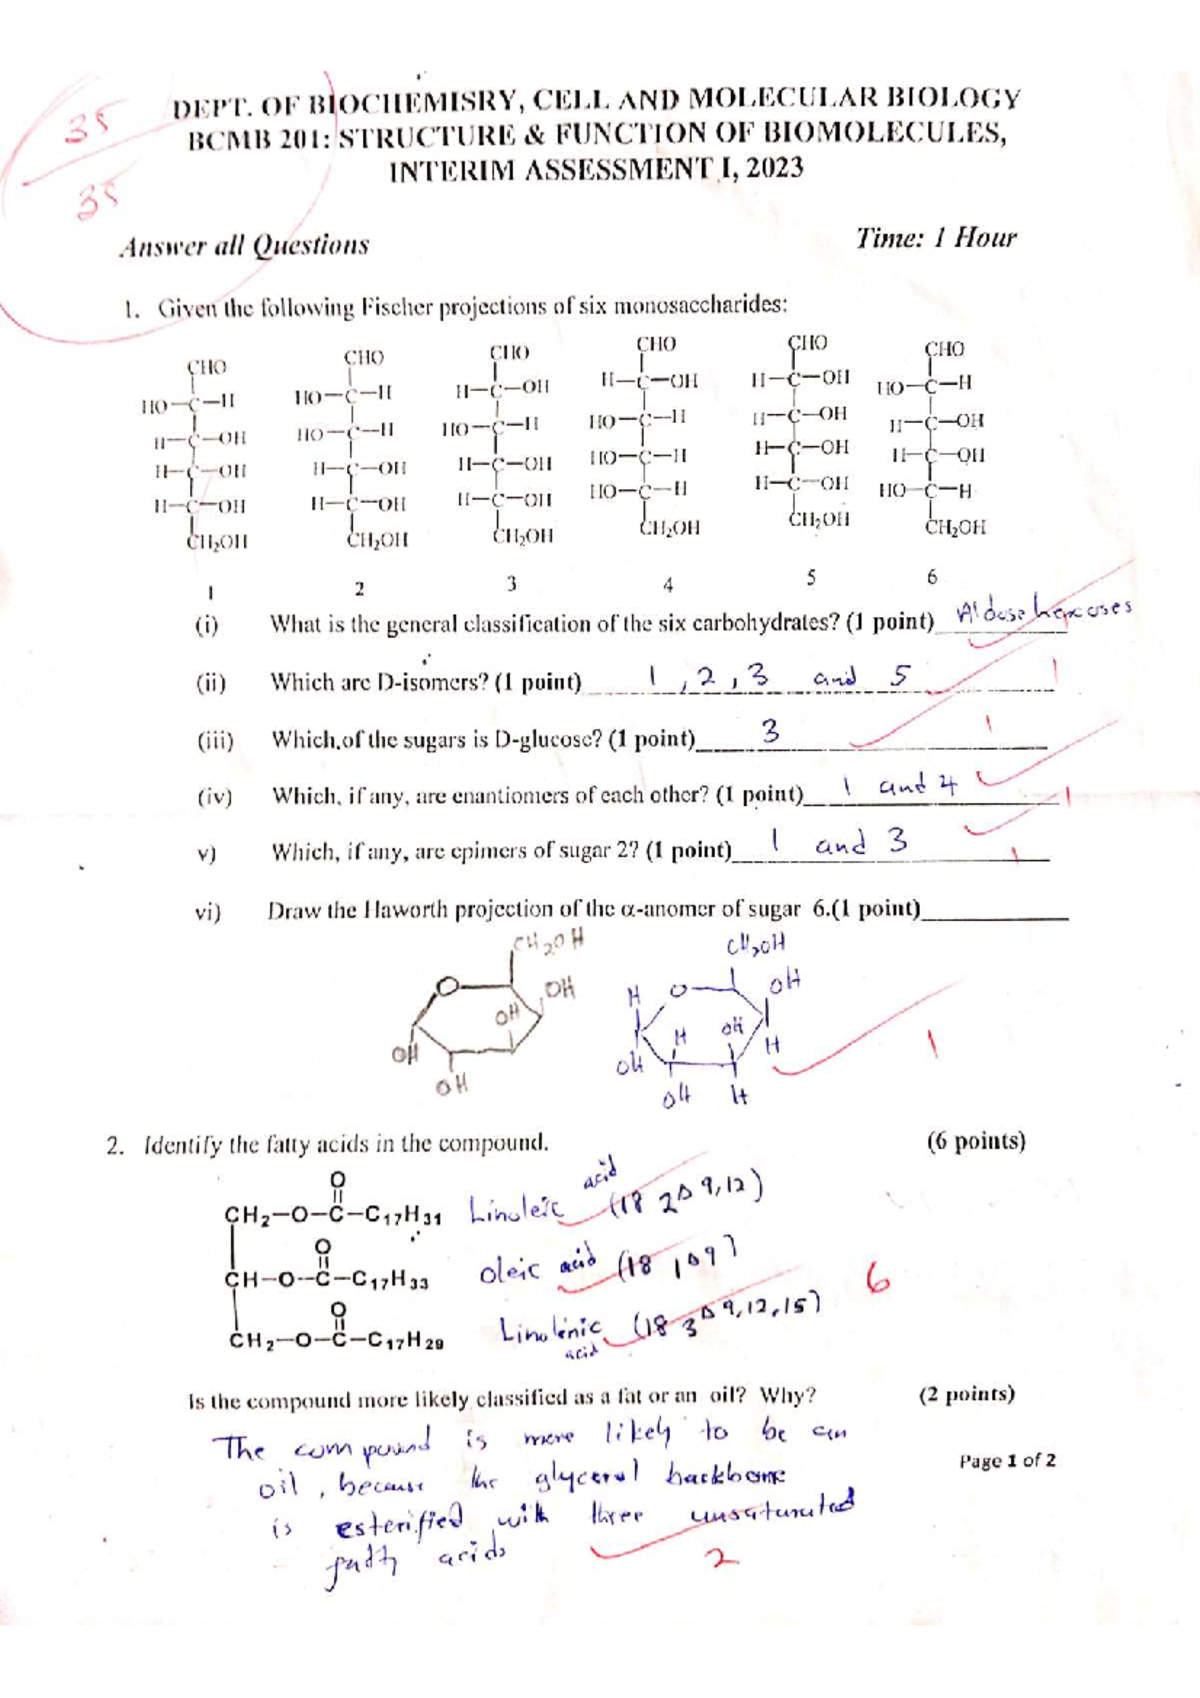 35
35
DEPT. OF BIOCHEMISRY, CELL AND MOLECULAR BIOLOGY
BCMB 201: STRUCTURE & FUNCTION OF BIOMOLECULES,
INTERIM ASSESSMENT I, 2023
Answer all Questions Time: 1 Hour
1. Given the following Fischer projections of six monosaccharides:
CHO CHO CHO CHO CHO CHO
HO-C-H HO-C-H H-C-OH H-C-OH H-C-OH HO-C-H
H-C-OH HO-C-H HO-C-H HO-C-H H-C-OH H-C-OH
H-C-OH H-C-OH H-C-OH HO-C-H H-C-OH H-C-OH
H-C-OH H-C-OH H-C-OH HO-C-H H-C-OH HO-C-H
CH₂OH CH₂OH CH₂OH CH₂OH CH₂OH CH₂OH
1 2 3 4 5 6
(i) What is the general classification of the six carbohydrates? (1 point) Aldose hexoses
(ii) Which are D-isomers? (1 point) 1, 2, 3 and 5 1
(iii) Which of the sugars is D-glucose? (1 point) 3 1
(iv) Which, if any, are enantiomers of each other? (1 point) 1 and 4 1
v) Which, if any, are epimers of sugar 2? (1 point) 1 and 3 1
vi) Draw the Haworth projection of the α-anomer of sugar 6.(1 point)
CH₂OH CH₂OH
O OH H O OH
OH H OH
OH OH H
OH OH H
1
2. Identify the fatty acids in the compound. (6 points)
O
CH₂-O-C-C₁₇H₃₁ Linoleic acid (18 2Δ9,12)
O
CH-O-C-C₁₇H₃₃ oleic acid (18 1Δ9)
6
O
CH₂-O-C-C₁₇H₂₉ Linolenic acid (18 3Δ9,12,15)
Is the compound more likely classified as a fat or an oil? Why? (2 points)
The compound is more likely to be an
Page 1 of 2
oil, because the glycerol backbone
is esterified with three unsaturated
fatty acids
2